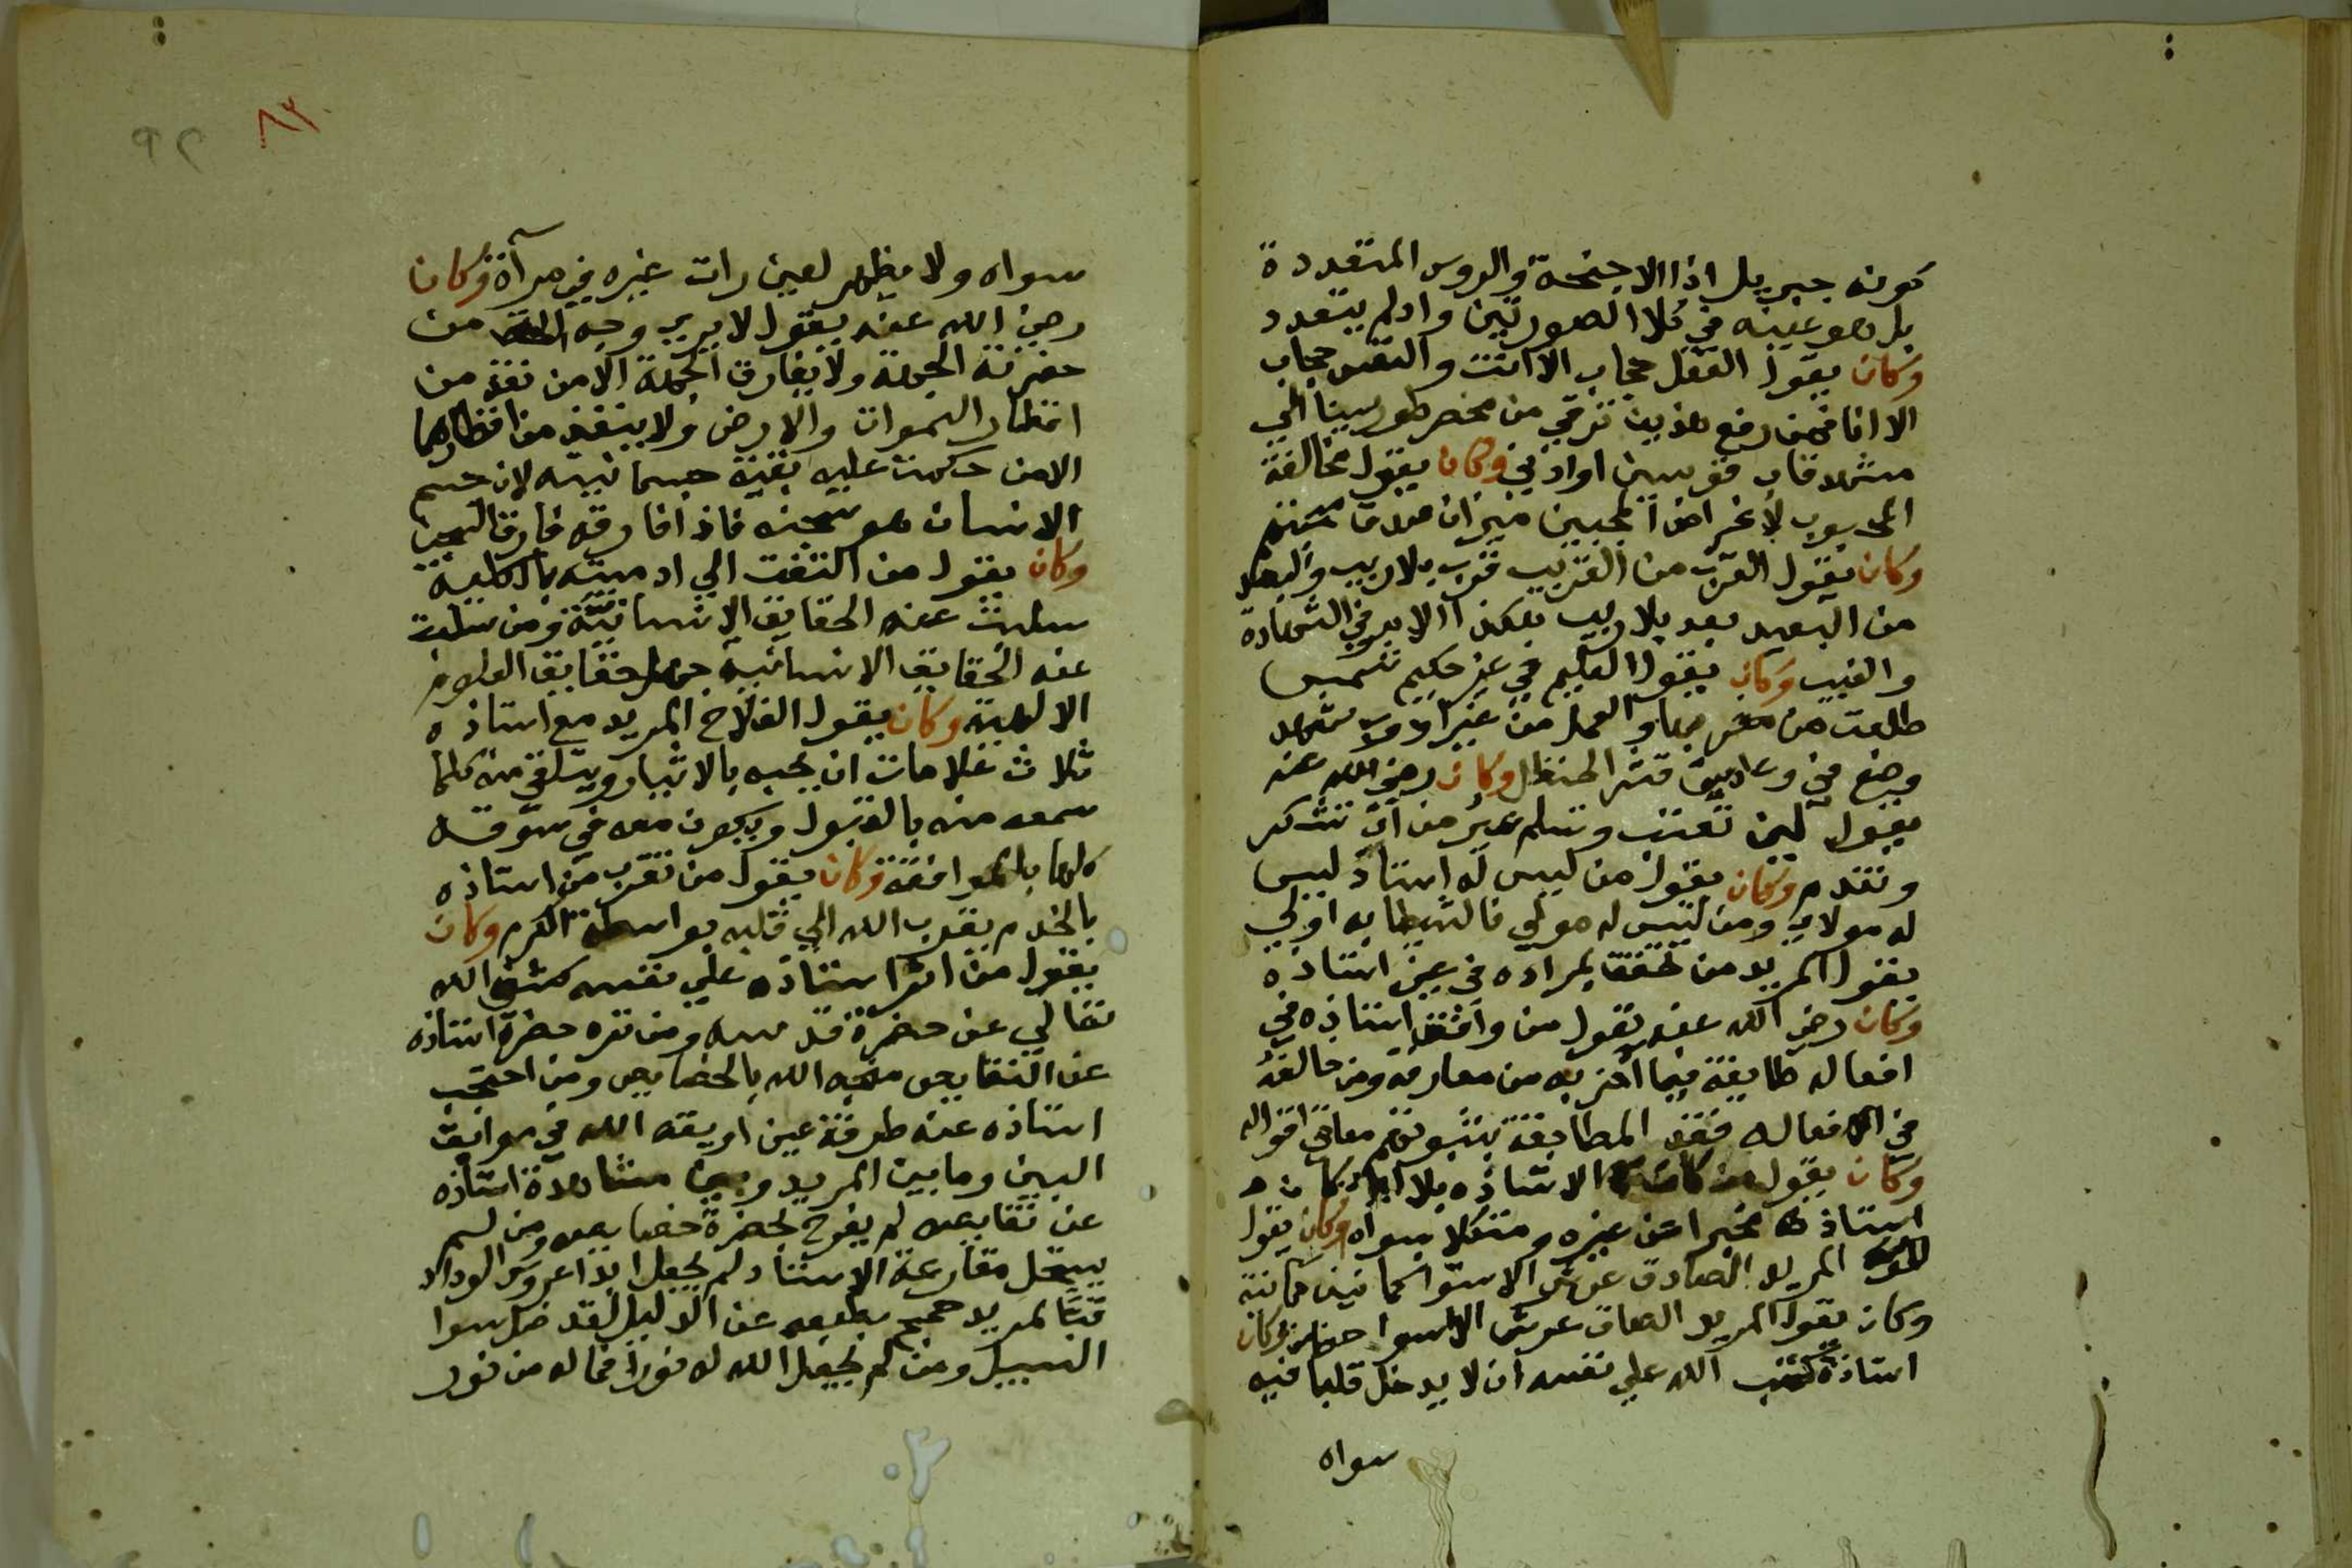 كونه جبريل اذا الاجنحة والروس المتعددة
بل هو عينه في كلا الصورتين وان لم يتعدد
وكان يقول العقل حجاب الا انت والنفس حجاب
الا انا فمن رفع هذين ترقي من محضر طور سينا الي
مشهد قاب قوسين او ادني وكان يقول مخالفة
المحبوب لاغراض المحبين ميزان صدق محبتهم
وكان يقول القرب من القريب قرب بلا ريب والبعد
من البعيد بعد بلا ريب هكذا الامر في الشهادة
والغيب وكان يقول العليم في غير حكيم شمس
طلعت من مغربها والعمل من غير
وضع في وعا فيه قشر الحنظل وكان رضي الله عنه
يقول لين تغبت وتسلم خير من ان تشكر
وتندم وكان يقول من ليس له استاذ ليس
له مولاي ومن ليس له مولي فالشيطان به اولي
يقول المريد من تحقق بمراده في عين استاذه
وكان رضي الله عنه يقول من وافق استاذه في
افعاله طابقه فيما اخبر به من معارفه ومن خالفه
في افعاله فقد المطابقة بينه معاني اقواله
وكان يقول من كان مع الاستاذه بلا كان
استاذه مخبرا عن غيره ومتكلا بسواه وكان يقول
المريد الصادق عرش الاستوا
وكان يقول المريد الصادق عرش الاستوا وكان
استاذه كتب الله علي نفسه ان لا يدخل قلبا فيه
سواه
٨٣
٩٢
سواه ولا يظهر لعين رات غيره في مرآة وكان
رضي الله عنه يقول لا يري وجه الحق من
حضرته الجهة ولا يفارق الجهة الا من نفذ من
اقطار السموات والارض ولا ينفذ من اقطارهما
الا من حكمت عليه بقية جسمانيته لان جسم
الانسان هو سجنه فاذا فارقه فارق السجن
وكان يقول من التفت الي ادميته بالكلية
سلبت عنه الحقايق الانسانية ومن سلبت
عنه الحقايق الانسانية جهل حقايق العلوم
الالهية وكان يقول الفلاح المريد مع استاذه
ثلاث علامات ان يحبه بالايثار ويتلقي منه كلما
سمعه منه بالقبول ويكون معه في شوقه
كلها بالموافقة وكان يقول من تقرب من استاذه
بالخدم يقرب الله الي قلبه بواسطة الكرم وكان
يقول من اثر استاذه علي نفسه كشف الله
تعالي عن حضرة قدسه ومن نزه حضرة استاذه
عن النقايص منحه الله بالخصايص ومن احتجب
استاذه عنه طرفة عين اوبقه الله في موابق
البين وما بين المريد وبين مشاهدة استاذه
عن نقايصه لم يفرح لحضرة خصايصه ومن لم
يستحل مقارعة الاستاذ لم يجعل ابدا عروس الوداد
قبتا لمريد حجب بطبعه عن الدليل لقد ضل سوا
السبيل ومن لم يجعل الله له نورا فما له من نور